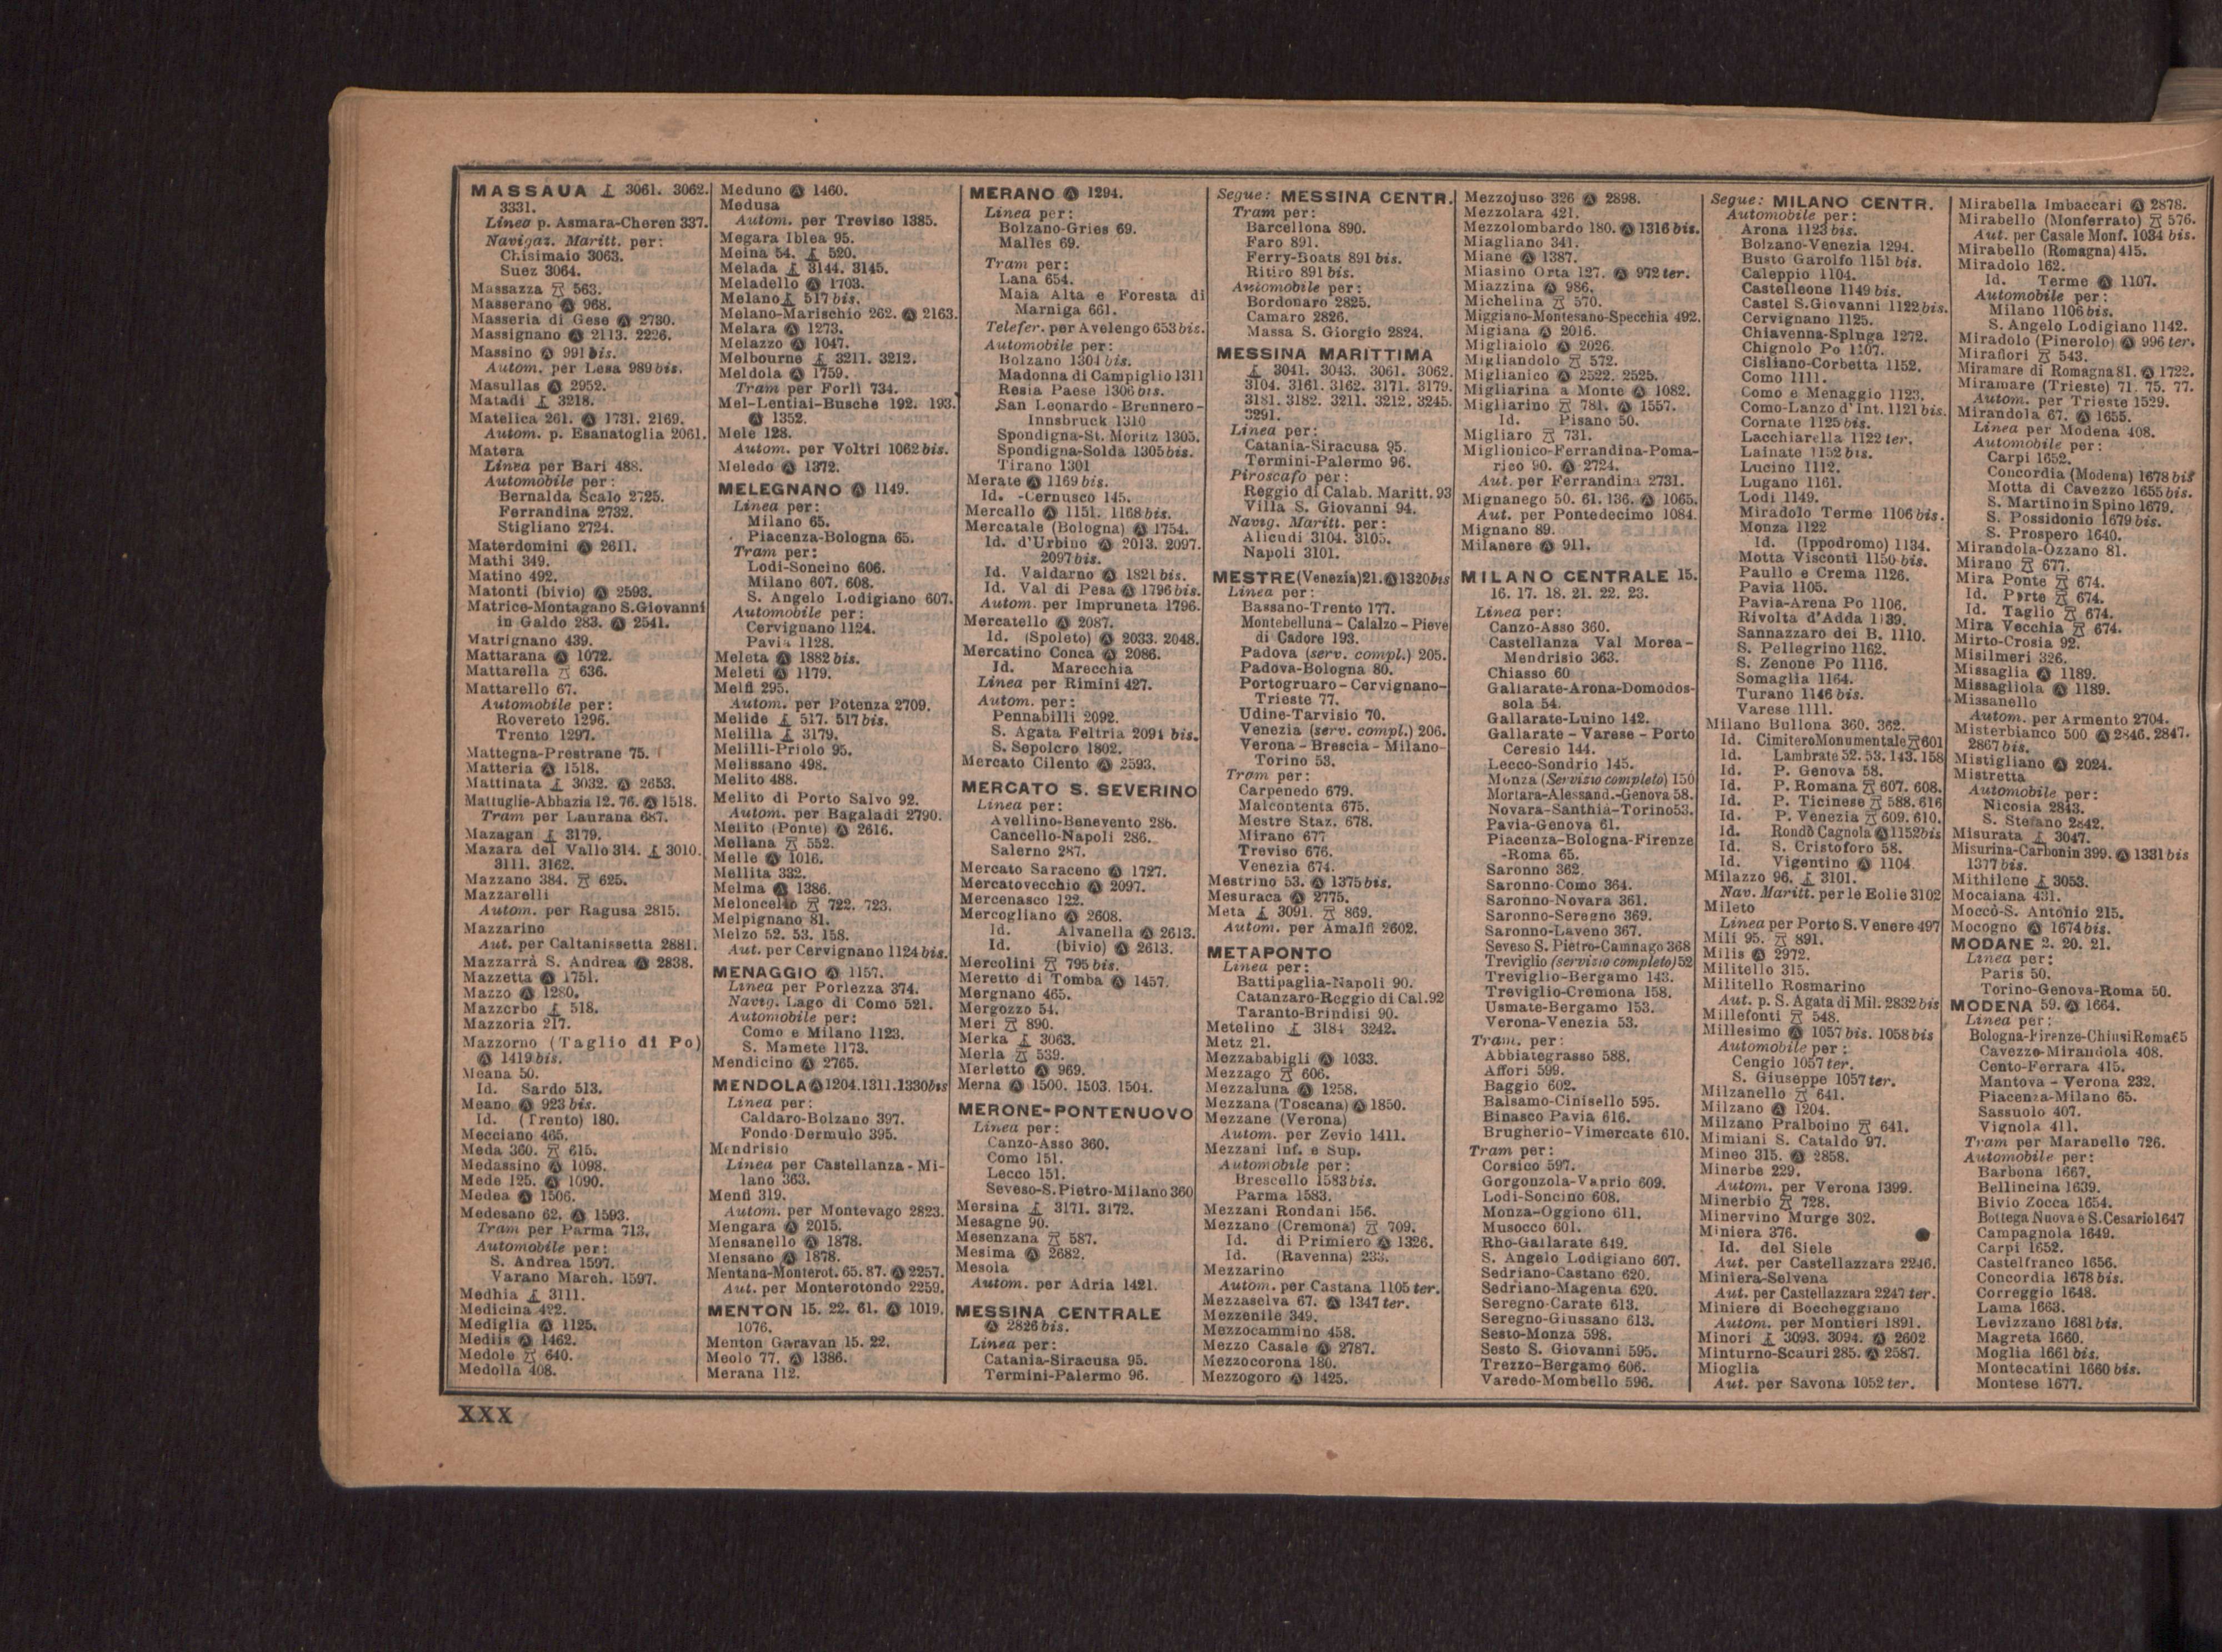 MASSAUA 3061. 3062.
3331.
Linea p. Asmara-Cheren 337.
Navigaz. Maritt. per:
Chisimaio 3063.
Suez 3064.
Massazza 563.
Masserano Ⓐ 968.
Masseria di Gese Ⓐ 2730.
Massignano Ⓐ 2113. 2226.
Massino Ⓐ 991 bis.
Autom. per Lesa 989 bis.
Masullas Ⓐ 2952.
Matadi 3218.
Matelica 261. Ⓐ 1731. 2169.
Autom. p. Esanatoglia 2061.
Matera
Linea per Bari 488.
Automobile per:
Bernalda Scalo 2725.
Ferrandina 2732.
Stigliano 2724.
Materdomini Ⓐ 2611.
Mathi 349.
Matino 492.
Matonti (bivio) Ⓐ 2593.
Matrice-Montagano S. Giovanni
in Galdo 283. Ⓐ 2541.
Matrignano 439.
Mattarana Ⓐ 1072.
Mattarella 636.
Mattarello 67.
Automobile per:
Rovereto 1296.
Trento 1297.
Mattegna-Prestrane 75.
Matteria Ⓐ 1518.
Mattinata 3032. Ⓐ 2653.
Mattuglie-Abbazia 12. 76. Ⓐ 1518.
Tram per Laurana 687.
Mazagan 3179.
Mazara del Vallo 314. 3010.
3111. 3162.
Mazzano 384. 625.
Mazzarelli
Autom. per Ragusa 2815.
Mazzarino
Aut. per Caltanissetta 2881.
Mazzarrà S. Andrea Ⓐ 2838.
Mazzetta Ⓐ 1751.
Mazzo Ⓐ 1280.
Mazzorbo 518.
Mazzoria 217.
Mazzorno (Taglio di Po)
Ⓐ 1419 bis.
Meana 50.
Id. Sardo 513.
Meano Ⓐ 923 bis.
Id. (Trento) 180.
Mecciano 465.
Meda 360. 615.
Medassino Ⓐ 1098.
Mede 125. Ⓐ 1090.
Medea Ⓐ 1506.
Medesano 62. Ⓐ 1593.
Tram per Parma 713.
Automobile per:
S. Andrea 1597.
Varano March. 1597.
Medhia 3111.
Medicina 422.
Mediglia Ⓐ 1125.
Mediis Ⓐ 1462.
Medole 640.
Medolla 408.
Meduno Ⓐ 1460.
Medusa
Autom. per Treviso 1385.
Megara Iblea 95.
Meina 54. 520.
Melada 3144. 3145.
Meladello Ⓐ 1703.
Melano 517 bis.
Melano-Marischio 262. Ⓐ 2163.
Melara Ⓐ 1273.
Melazzo Ⓐ 1047.
Melbourne 3211. 3212.
Meldola Ⓐ 1759.
Tram per Forlì 734.
Mel-Lentiai-Busche 192. 193.
Ⓐ 1352.
Mele 128.
Autom. per Voltri 1062 bis.
Meledo Ⓐ 1372.
MELEGNANO Ⓐ 1149.
Linea per:
Milano 65.
Piacenza-Bologna 65.
Tram per:
Lodi-Soncino 606.
Milano 607. 608.
S. Angelo Lodigiano 607.
Automobile per:
Cervignano 1124.
Pavia 1128.
Meleta Ⓐ 1882 bis.
Meleti Ⓐ 1179.
Melfi 295.
Autom. per Potenza 2709.
Melide 517. 517 bis.
Melilla 3179.
Melilli-Priolo 95.
Melissano 498.
Melito 488.
Melito di Porto Salvo 92.
Autom. per Bagaladi 2790.
Melito (Ponte) Ⓐ 2616.
Mellana 552.
Melle Ⓐ 1016.
Mellita 332.
Melma Ⓐ 1386.
Meloncello 722. 723.
Melpignano 81.
Melzo 52. 53. 158.
Aut. per Cervignano 1124 bis.
MENAGGIO Ⓐ 1157.
Linea per Porlezza 374.
Navig. Lago di Como 521.
Automobile per:
Como e Milano 1123.
S. Mamete 1173.
Mendicino Ⓐ 2765.
MENDOLA Ⓐ 1204. 1311. 1330 bis
Linea per:
Caldaro-Bolzano 397.
Fondo-Dermulo 395.
Mendrisio
Linea per Castellanza-Mi-
lano 363.
Menfi 319.
Autom. per Montevago 2823.
Mengara Ⓐ 2015.
Mensanello Ⓐ 1878.
Mensano Ⓐ 1878.
Mentana-Monterot. 65. 87. Ⓐ 2257.
Aut. per Monterotondo 2259.
MENTON 15. 22. 61. Ⓐ 1019.
1076.
Menton Garavan 15. 22.
Meolo 77. Ⓐ 1386.
Merana 112.
MERANO Ⓐ 1294.
Linea per:
Bolzano-Gries 69.
Malles 69.
Tram per:
Lana 654.
Maia Alta e Foresta di
Marniga 661.
Telefer. per Avelengo 653 bis.
Automobile per:
Bolzano 1304 bis.
Madonna di Campiglio 1311
Resia Paese 1306 bis.
San Leonardo-Brennero-
Innsbruck 1310
Spondigna-St. Moritz 1305.
Spondigna-Solda 1305 bis.
Tirano 1301
Merate Ⓐ 1169 bis.
Id. -Cernusco 145.
Mercallo Ⓐ 1151. 1168 bis.
Mercatale (Bologna) Ⓐ 1754.
Id. d'Urbino Ⓐ 2013. 2097.
2097 bis.
Id. Valdarno Ⓐ 1821 bis.
Id. Val di Pesa Ⓐ 1796 bis.
Autom. per Impruneta 1796.
Mercatello Ⓐ 2087.
Id. (Spoleto) Ⓐ 2033. 2048.
Mercatino Conca Ⓐ 2086.
Id. Marecchia
Linea per Rimini 427.
Autom. per:
Pennabilli 2092.
S. Agata Feltria 2091 bis.
S. Sepolcro 1802.
Mercato Cilento Ⓐ 2593.
MERCATO S. SEVERINO
Linea per:
Avellino-Benevento 286.
Cancello-Napoli 286.
Salerno 287.
Mercato Saraceno Ⓐ 1727.
Mercatovecchio Ⓐ 2097.
Mercenasco 122.
Mercogliano Ⓐ 2608.
Id. Alvanella Ⓐ 2613.
Id. (bivio) Ⓐ 2613.
Mercolini 795 bis.
Meretto di Tomba Ⓐ 1457.
Mergnano 465.
Mergozzo 54.
Merì 890.
Merka 3063.
Merla 539.
Merletto Ⓐ 969.
Merna Ⓐ 1500. 1503. 1504.
MERONE-PONTENUOVO
Linea per:
Canzo-Asso 360.
Como 151.
Lecco 151.
Seveso-S. Pietro-Milano 360
Mersina 3171. 3172.
Mesagne 90.
Mesenzana 587.
Mesima Ⓐ 2682.
Mesola
Autom. per Adria 1421.
MESSINA CENTRALE
Ⓐ 2826 bis.
Linea per:
Catania-Siracusa 95.
Termini-Palermo 96.
Segue: MESSINA CENTR.
Tram per:
Barcellona 890.
Faro 891.
Ferry-Boats 891 bis.
Ritiro 891 bis.
Automobile per:
Bordonaro 2825.
Camaro 2826.
Massa S. Giorgio 2824.
MESSINA MARITTIMA
3041. 3043. 3061. 3062.
3104. 3161. 3162. 3171. 3179.
3181. 3182. 3211. 3212. 3245.
3291.
Linea per:
Catania-Siracusa 95.
Termini-Palermo 96.
Piroscafo per:
Reggio di Calab. Maritt. 93
Villa S. Giovanni 94.
Navig. Maritt. per:
Alicudi 3104. 3105.
Napoli 3101.
MESTRE (Venezia) 21. Ⓐ 1320 bis
Linea per:
Bassano-Trento 177.
Montebelluna-Calalzo-Pieve
di Cadore 193.
Padova (serv. compl.) 205.
Padova-Bologna 80.
Portogruaro-Cervignano-
Trieste 77.
Udine-Tarvisio 70.
Venezia (serv. compl.) 206.
Verona-Brescia-Milano-
Torino 53.
Tram per:
Carpenedo 679.
Malcontenta 675.
Mestre Staz. 678.
Mirano 677
Treviso 676.
Venezia 674.
Mestrino 53. Ⓐ 1375 bis.
Mesuraca Ⓐ 2775.
Meta 3091. 869.
Autom. per Amalfi 2602.
METAPONTO
Linea per:
Battipaglia-Napoli 90.
Catanzaro-Reggio di Cal. 92
Taranto-Brindisi 90.
Metelino 3184 3242.
Metz 21.
Mezzababigli Ⓐ 1033.
Mezzago 606.
Mezzaluna Ⓐ 1258.
Mezzana (Toscana) Ⓐ 1850.
Mezzane (Verona)
Autom. per Zevio 1411.
Mezzani Inf. e Sup.
Automobile per:
Brescello 1583 bis.
Parma 1583.
Mezzani Rondani 156.
Mezzano (Cremona) 709.
Id. di Primiero Ⓐ 1326.
Id. (Ravenna) 233.
Mezzarino
Autom. per Castana 1105 ter.
Mezzaselva 67. Ⓐ 1347 ter.
Mezzenile 349.
Mezzocammino 458.
Mezzo Casale Ⓐ 2787.
Mezzocorona 180.
Mezzogoro Ⓐ 1425.
Mezzojuso 326 Ⓐ 2898.
Mezzolara 421.
Mezzolombardo 180. Ⓐ 1316 bis.
Miagliano 341.
Miane Ⓐ 1387.
Miasino Orta 127. Ⓐ 972 ter.
Miazzina Ⓐ 986.
Michelina 570.
Miggiano-Montesano-Specchia 492.
Migiana Ⓐ 2016.
Migliaiolo Ⓐ 2026.
Migliandolo 572.
Miglianico Ⓐ 2522. 2525.
Migliarina a Monte Ⓐ 1082.
Migliarino 781. Ⓐ 1557.
Id. Pisano 50.
Migliaro 731.
Miglionico-Ferrandina-Poma-
rico 90. Ⓐ 2724.
Aut. per Ferrandina 2731.
Mignanego 50. 61. 136. Ⓐ 1065.
Aut. per Pontedecimo 1084.
Mignano 89.
Milanere Ⓐ 911.
MILANO CENTRALE 15.
16. 17. 18. 21. 22. 23.
Linea per:
Canzo-Asso 360.
Castellanza Val Morea-
Mendrisio 363.
Chiasso 60
Gallarate-Arona-Domodos-
sola 54.
Gallarate-Luino 142.
Gallarate-Varese-Porto
Ceresio 144.
Lecco-Sondrio 145.
Monza (Servizio completo) 150
Mortara-Alessand.-Genova 58.
Novara-Santhià-Torino 53.
Pavia-Genova 61.
Piacenza-Bologna-Firenze
-Roma 65.
Saronno 362.
Saronno-Como 364.
Saronno-Novara 361.
Saronno-Seregno 369.
Saronno-Laveno 367.
Seveso S. Pietro-Camnago 368
Treviglio (servizio completo) 52
Treviglio-Bergamo 143.
Treviglio-Cremona 158.
Usmate-Bergamo 153.
Verona-Venezia 53.
Tram. per:
Abbiategrasso 588.
Affori 599.
Baggio 602.
Balsamo-Cinisello 595.
Binasco Pavia 616.
Brugherio-Vimercate 610.
Tram per:
Corsico 597.
Gorgonzola-Vaprio 609.
Lodi-Soncino 608.
Monza-Oggiono 611.
Musocco 601.
Rho-Gallarate 649.
S. Angelo Lodigiano 607.
Sedriano-Castano 620.
Sedriano-Magenta 620.
Seregno-Carate 613.
Seregno-Giussano 613.
Sesto-Monza 598.
Sesto S. Giovanni 595.
Trezzo-Bergamo 606.
Varedo-Mombello 596.
Segue: MILANO CENTR.
Automobile per:
Arona 1123 bis.
Bolzano-Venezia 1294.
Busto Garolfo 1151 bis.
Caleppio 1104.
Castelleone 1149 bis.
Castel S. Giovanni 1122 bis.
Cervignano 1125.
Chiavenna-Spluga 1272.
Chignolo Po 1107.
Cisliano-Corbetta 1152.
Como 1111.
Como e Menaggio 1123.
Como-Lanzo d'Int. 1121 bis.
Cornate 1125 bis.
Lacchiarella 1122 ter.
Lainate 1152 bis.
Lucino 1112.
Lugano 1161.
Lodi 1149.
Miradolo Terme 1106 bis.
Monza 1122
Id. (Ippodromo) 1134.
Motta Visconti 1150 bis.
Paullo e Crema 1126.
Pavia 1105.
Pavia-Arena Po 1106.
Rivolta d'Adda 1139.
Sannazzaro dei B. 1110.
S. Pellegrino 1162.
S. Zenone Po 1116.
Somaglia 1164.
Turano 1146 bis.
Varese 1111.
Milano Bullona 360. 362.
Id. Cimitero Monumentale 601
Id. Lambrate 52. 53. 143. 158
Id. P. Genova 58.
Id. P. Romana 607. 608.
Id. P. Ticinese 588. 616
Id. P. Venezia 609. 610.
Id. Rondò Cagnola Ⓐ 1152 bis
Id. S. Cristoforo 58.
Id. Vigentino Ⓐ 1104
Milazzo 96. 3101.
Nav. Maritt. per le Eolie 3102
Mileto
Linea per Porto S. Venere 497
Mili 95. 891.
Milis Ⓐ 2972.
Militello 315.
Militello Rosmarino
Aut. p. S. Agata di Mil. 2832 bis
Millefonti 548.
Millesimo Ⓐ 1057 bis. 1058 bis
Automobile per:
Cengio 1057 ter.
S. Giuseppe 1057 ter.
Milzanello 641.
Milzano Ⓐ 1204.
Milzano Pralboino 641.
Mimiani S. Cataldo 97.
Mineo 315. Ⓐ 2858.
Minerbe 229.
Autom. per Verona 1399.
Minerbio 728.
Minervino Murge 302.
Miniera 376.
Id. del Siele
Aut. per Castellazzara 2246.
Miniera-Selvena
Aut. per Castellazzara 2247 ter.
Miniere di Boccheggiano
Autom. per Montieri 1891.
Minori 3093. 3094. Ⓐ 2602
Minturno-Scauri 285. Ⓐ 2587.
Mioglia
Aut. per Savona 1052 ter.
Mirabella Imbaccari Ⓐ 2878.
Mirabello (Monferrato) 576.
Aut. per Casale Monf. 1034 bis.
Mirabello (Romagna) 415.
Miradolo 162.
Id. Terme Ⓐ 1107.
Automobile per:
Milano 1106 bis.
S. Angelo Lodigiano 1142.
Miradolo (Pinerolo) Ⓐ 996 ter.
Mirafiori 543.
Miramare di Romagna 81. Ⓐ 1722.
Miramare (Trieste) 71. 75. 77.
Autom. per Trieste 1529.
Mirandola 67. Ⓐ 1655.
Linea per Modena 408.
Automobile per:
Carpi 1652.
Concordia (Modena) 1678 bis
Motta di Cavezzo 1655 bis.
S. Martino in Spino 1679.
S. Possidonio 1679 bis.
S. Prospero 1640.
Mirandola-Ozzano 81.
Mirano 677.
Mira Ponte 674.
Id. Porte 674.
Id. Taglio 674.
Mira Vecchia 674.
Mirto-Crosia 92.
Misilmeri 326.
Missaglia Ⓐ 1189.
Missagliola Ⓐ 1189.
Missanello
Autom. per Armento 2704.
Misterbianco 500 Ⓐ 2846. 2847.
2867 bis.
Mistigliano Ⓐ 2024.
Mistretta
Automobile per:
Nicosia 2843.
S. Stefano 2842.
Misurata 3047.
Misurina-Carbonin 399. Ⓐ 1331 bis
1377 bis.
Mithilene 3053.
Mocaiana 431.
Moccò-S. Antonio 215.
Mocogno Ⓐ 1674 bis.
MODANE 2. 20. 21.
Linea per:
Paris 50.
Torino-Genova-Roma 50.
MODENA 59. Ⓐ 1664.
Linea per:
Bologna-Firenze-Chiusi Roma 65
Cavezzo-Mirandola 408.
Cento-Ferrara 415.
Mantova-Verona 232.
Piacenza-Milano 65.
Sassuolo 407.
Vignola 411.
Tram per Maranello 726.
Automobile per:
Barbona 1667.
Bellincina 1639.
Bivio Zocca 1654.
Bottega Nuova e S. Cesario 1647
Campagnola 1649.
Carpi 1652.
Castelfranco 1656.
Concordia 1678 bis.
Correggio 1648.
Lama 1663.
Levizzano 1681 bis.
Magreta 1660.
Moglia 1661 bis.
Montecatini 1660 bis.
Montese 1677.
XXX